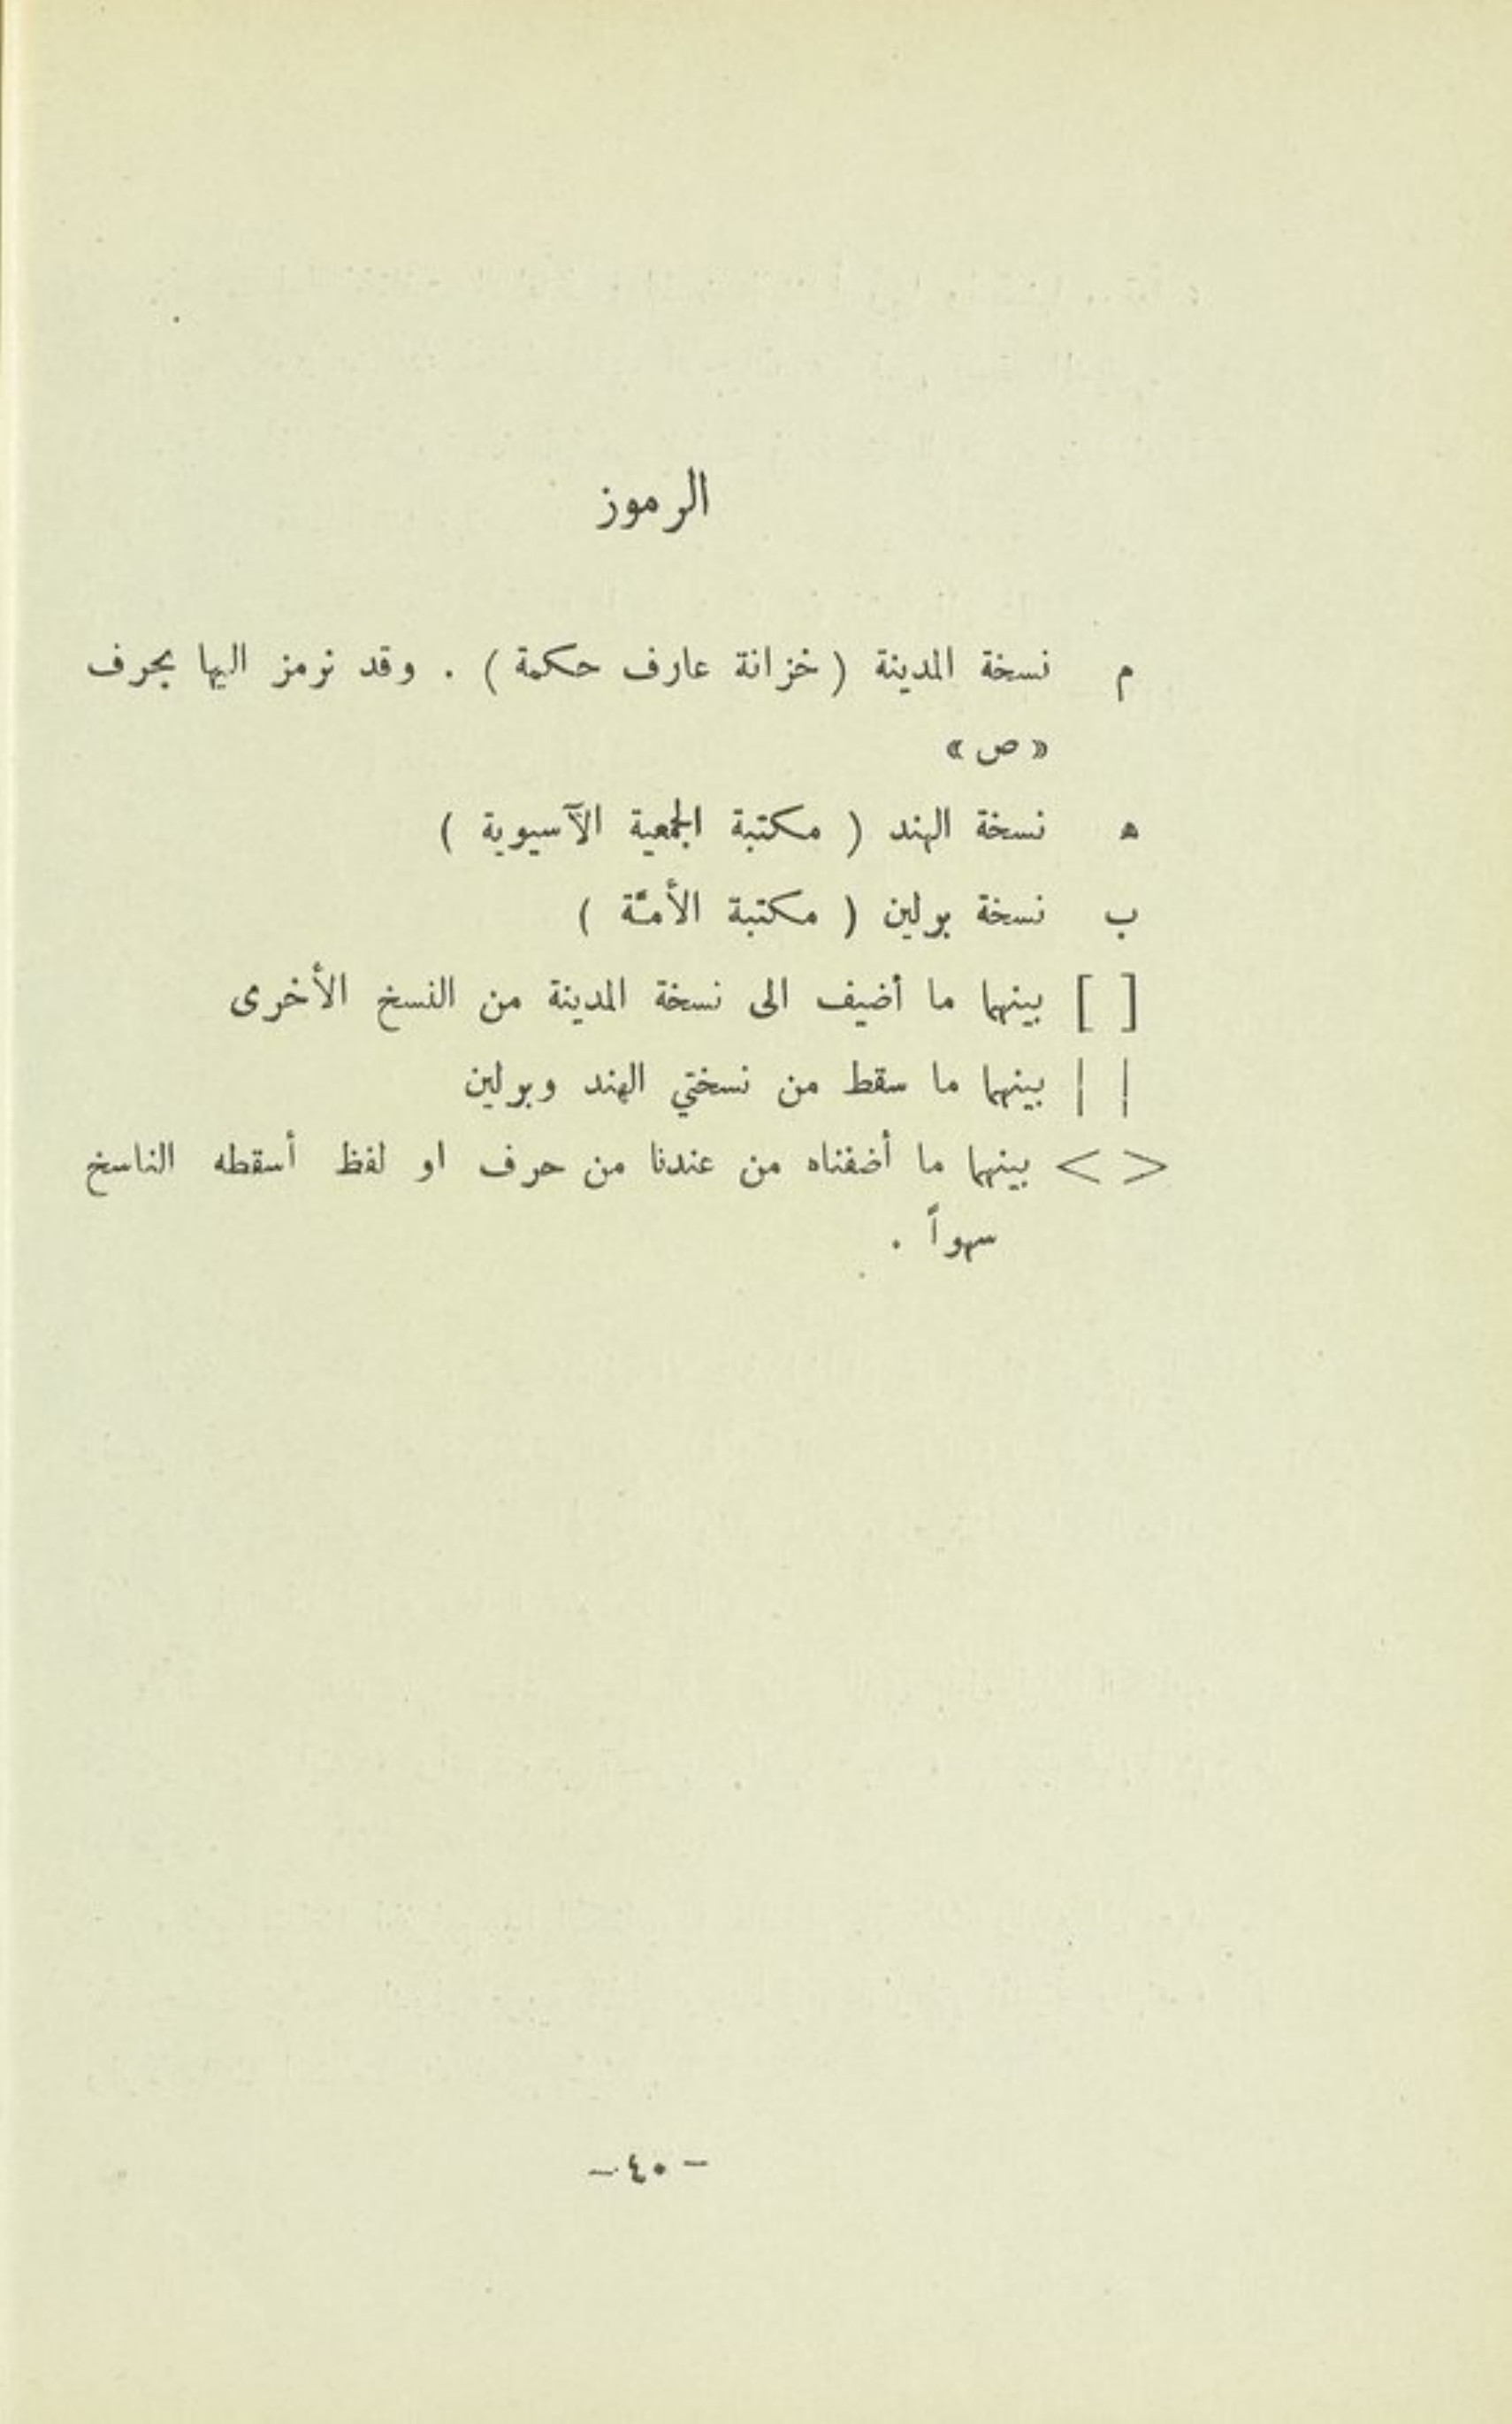 الرموز
م نسخة المدينة ( خزانة عارف حكمة ) . وقد نرمز اليها بحرف
« ص »
ه نسخة الهند ( مكتبة الجمعية الآسيوية )
ب نسخة برلين ( مكتبة الأمّة )
[ ] بينهما ما أضيف الى نسخة المدينة من النسخ الأخرى
| | بينهما ما سقط من نسختي الهند وبرلين
< > بينهما ما أضفناه من عندنا من حرف او لفظ أسقطه الناسخ
سهواً .
– ٤٠ –